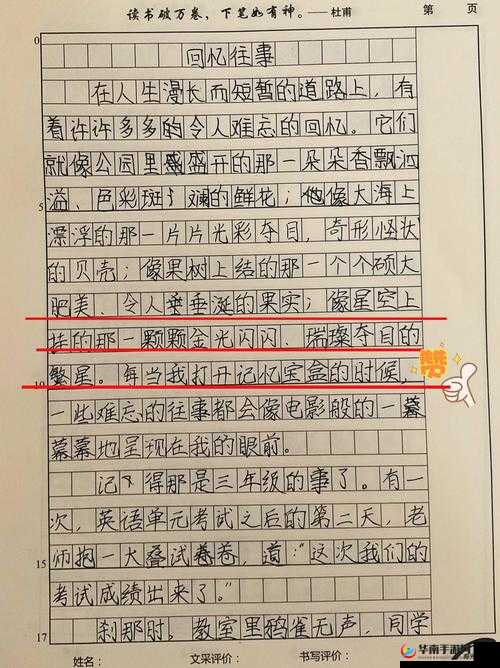 读书破万卷，下笔如有神。——杜甫 第 页
0
回忆往事
在人生漫长而短暂的道路上，有
着许许多多的令人难忘的回忆。它们
就像公园里盛开的那一朵朵香飘洒
溢、色彩斑斓的鲜花；像大海上
5
漂浮的那一片片光彩夺目，奇形怪状
的贝壳；像果树上结的那一个个硕大
肥美、令人垂垂涎的果实；像星空上
挂的那一颗颗金光闪闪、璀璨夺目的
繁星。每当我打开记忆宝盒的时候，
10
一些难忘的往事都会像电影般的一幕
幕幕地呈现在我的眼前。
记得那是三年级的事了。有一
次，英语单元考试之后的第二天，老
师抱一大叠试卷卷，道：“这次我们的
15
考试成绩出来了。”
刹那时，教室里鸦雀无声，同学
17
姓名： 文采评价： 书写评价：
赞
华南手游网